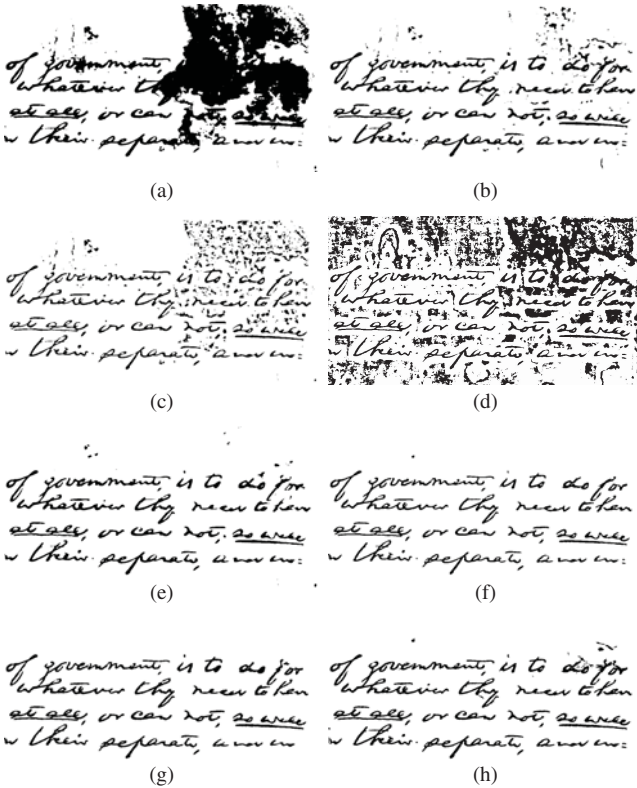 of government,
whatever
at all, or can not, so well
their separate, and in
(a)
of government, is to do for
whatever they need to have
at all, or can not, so well
their separate, and in
(b)
of government, is to do for
whatever they need to have
at all, or can not, so well
their separate, and in
(c)
of government, is to do for
whatever they need to have
at all, or can not, so well
their separate, and in
(d)
of government, is to do for
whatever they need to have
at all, or can not, so well
their separate, and in
(e)
of government, is to do for
whatever they need to have
at all, or can not, so well
their separate, and in
(f)
of government, is to do for
whatever they need to have
at all, or can not, so well
their separate, and in
(g)
of government, is to do for
whatever they need to have
at all, or can not, so well
their separate, and in
(h)